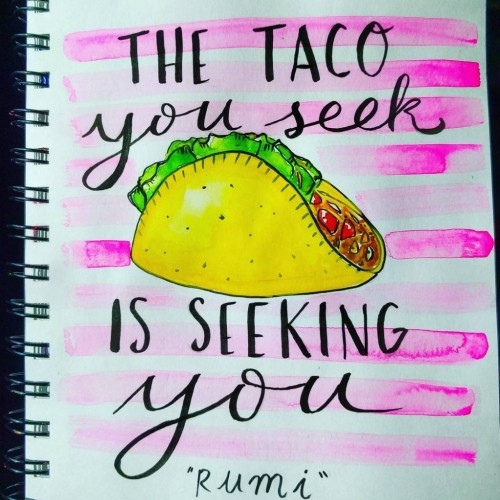 THE TACO
you seek
IS SEEKING
you
"Rumi"